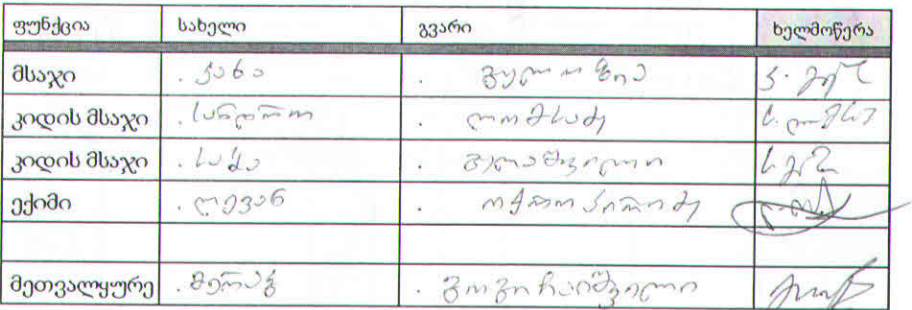 ფუნქცია სახელი გვარი ხელმოწერა
მსაჯი . კახა .
კიდის მსაჯი . სანდრო . ლომსაძე
კიდის მსაჯი . საბა . გელაშვილი
ექიმი . ლევან . ოქროპირიძე
მეთვალყურე . მერაბ . გოგიჩაიშვილი